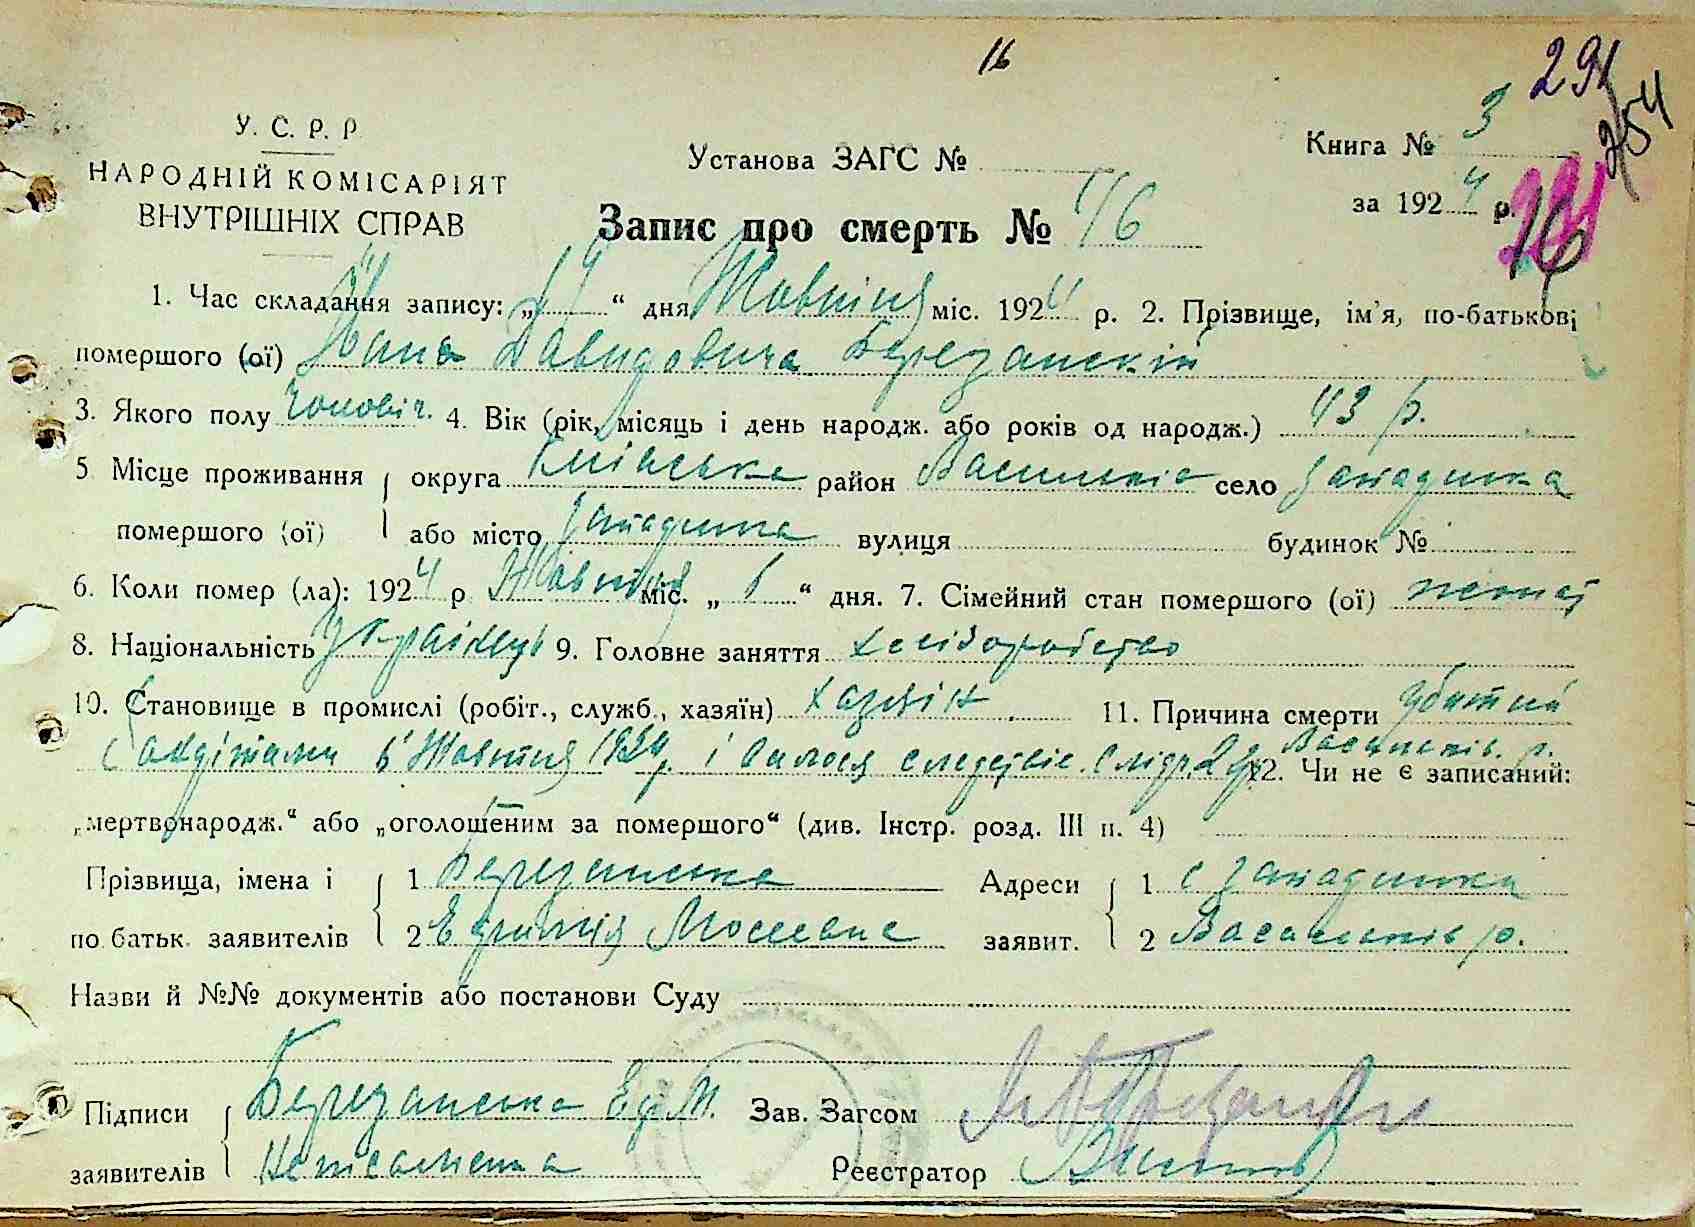 16
291
254
У. С. Р. Р
НАРОДНІЙ КОМІСАРІЯТ
ВНУТРІШНІХ СПРАВ
Установа ЗАГС №
Книга № 3
за 1924 р.
16
Запис про смерть № 16
1. Час складання запису: „ “ дня Жовтня міс. 1924 р. 2. Прізвище, ім'я, по-батькові
помершого (ої) Ивана Давидовича Березанский
3. Якого полу чоловіч. 4. Вік (рік, місяць і день народж. або років од народж.) 43 р.
5. Місце проживання округа Київська район Васильків село Западинка
помершого (ої) або місто Западинка вулиця будинок №
6. Коли помер (ла): 1924 р Жовтня міс. „ 6 “ дня. 7. Сімейний стан помершого (ої)
8. Національність Українець 9. Головне заняття хліборобство
10. Становище в промислі (робіт., служб., хазяїн) хазяїн 11. Причина смерти убитий
бандітами 6 Жовтня 1924 р. і следствіе Васильків. р.
12. Чи не є записаний:
„мертвонародж.“ або „оголошеним за помершого“ (див. Інстр. розд. III п. 4)
Прізвища, імена і 1 Березанська Адреси 1 с Западинка
по батьк. заявителів 2 заявит. 2 Васильків р.
Назви й №№ документів або постанови Суду
Підписи Березанська Еф. М. Зав. Загсом
заявителів Неписьмена Реєстратор